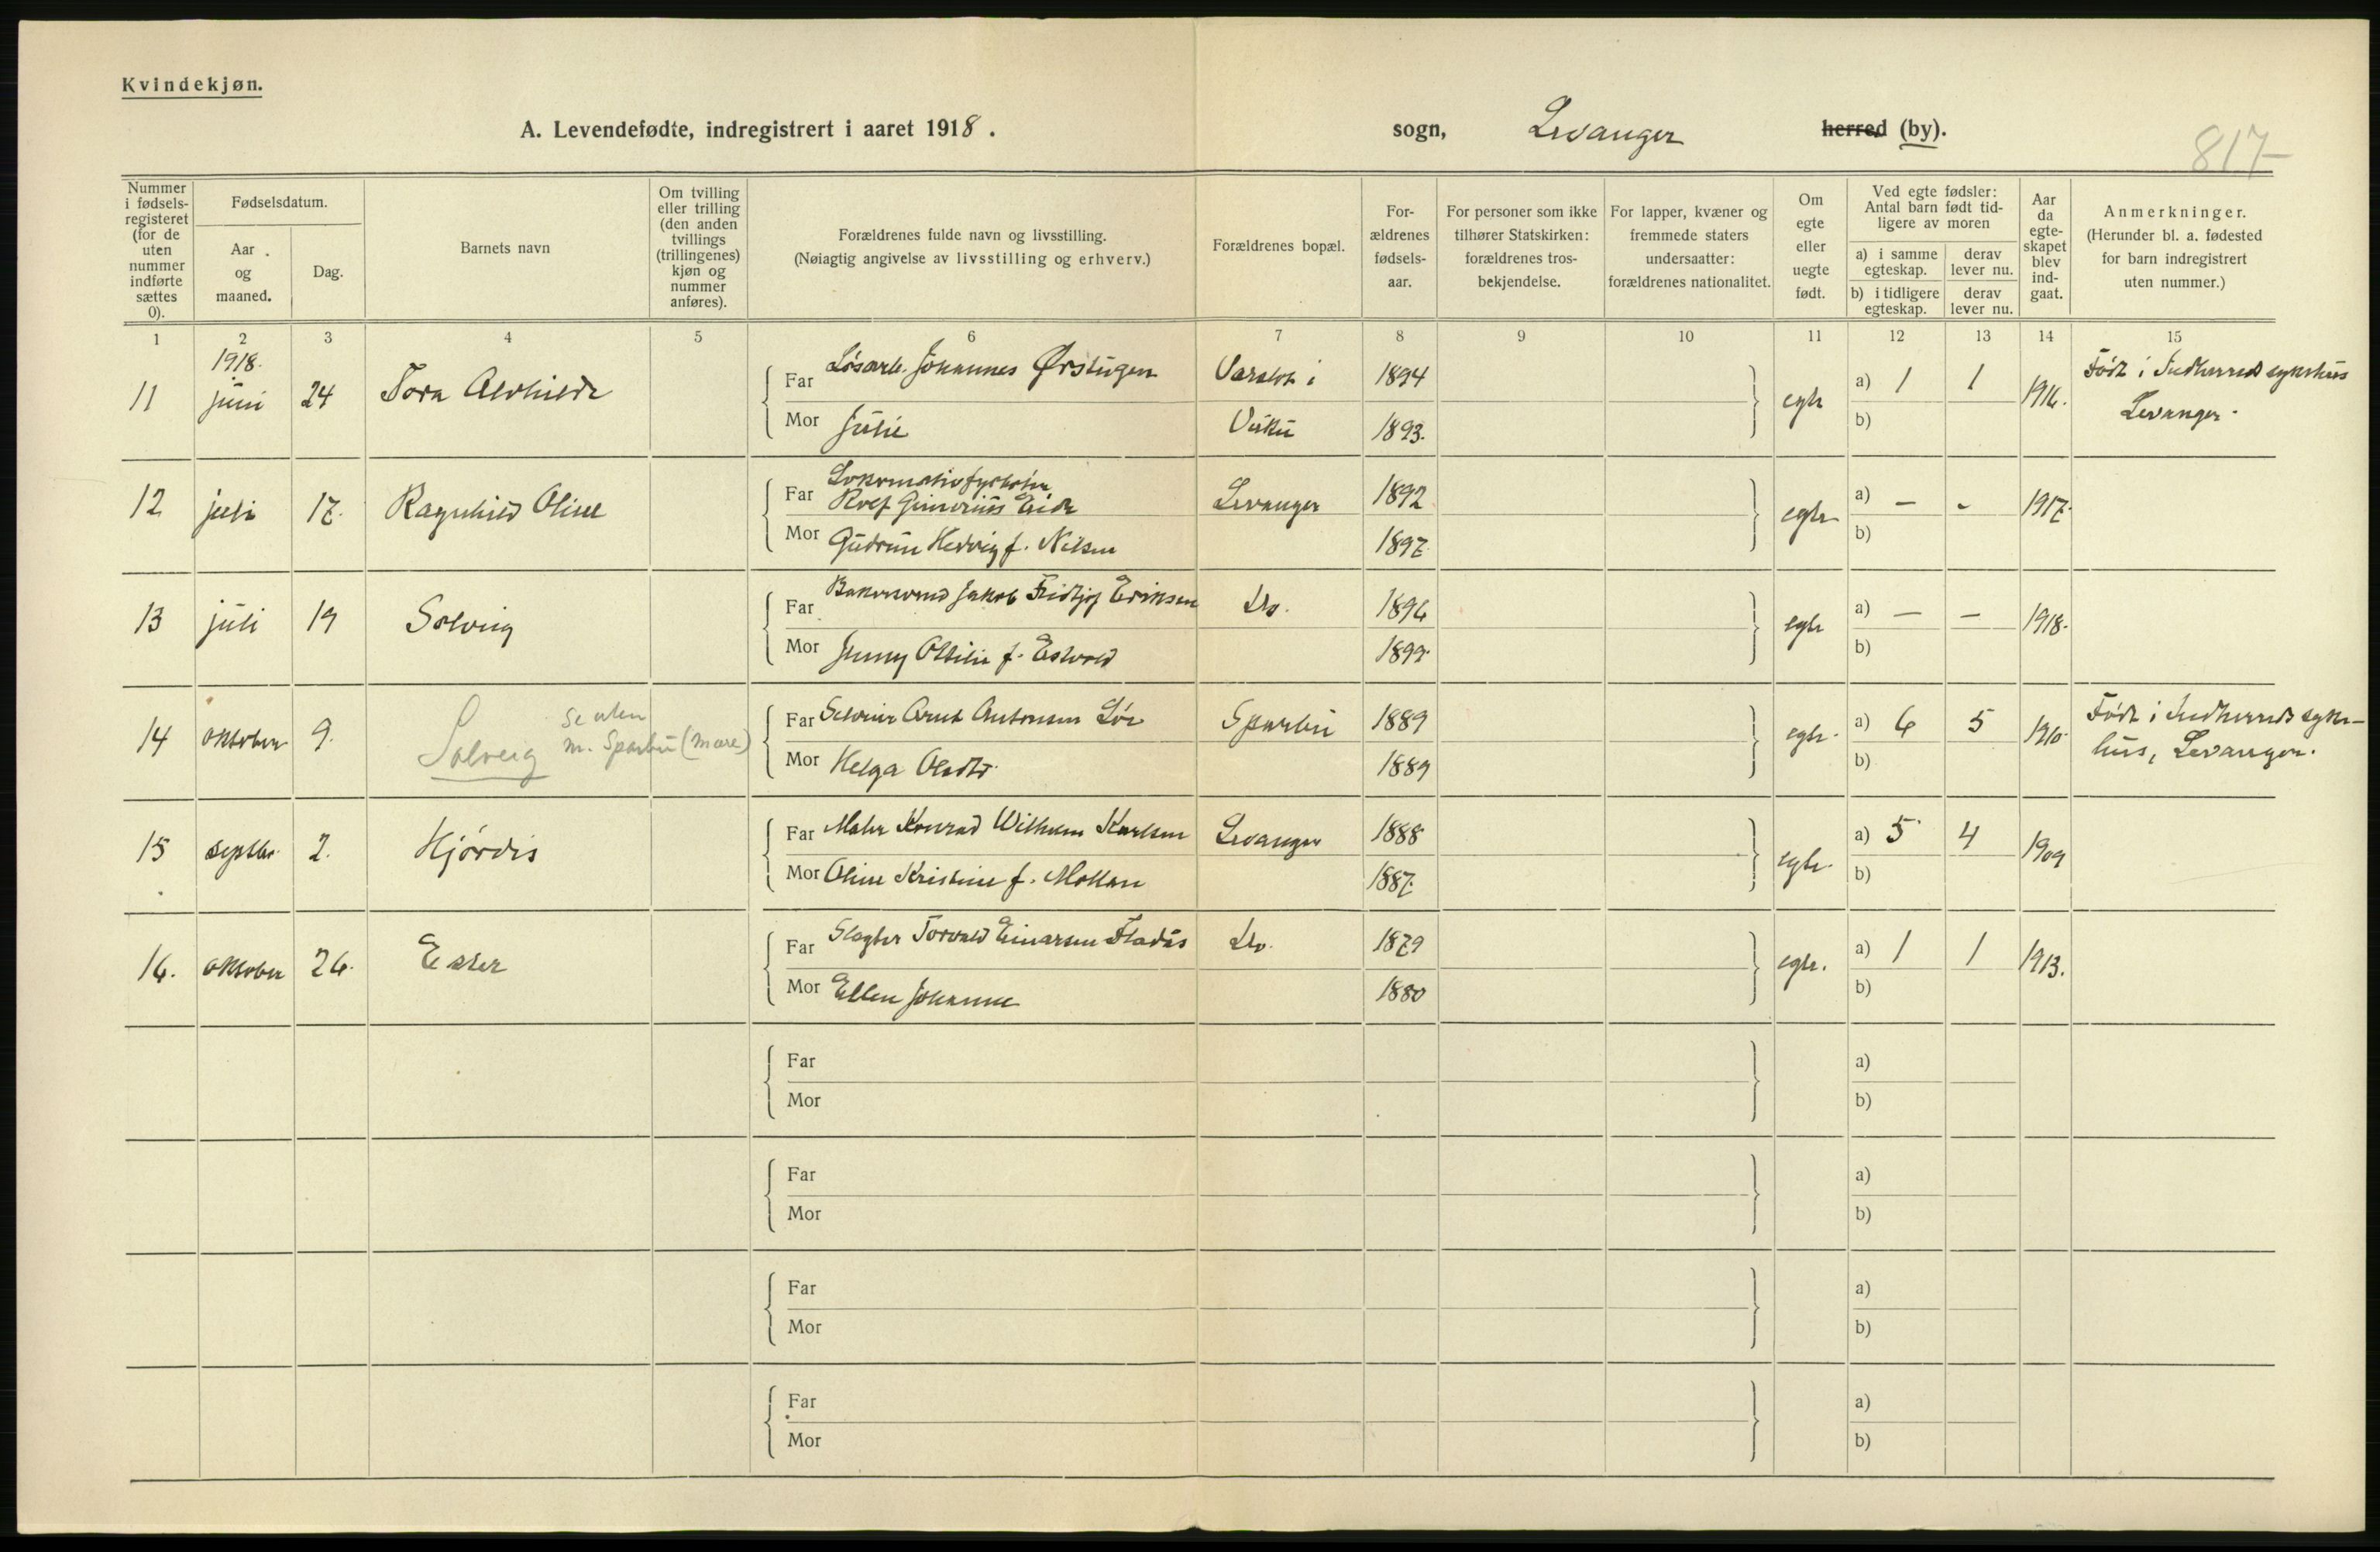 Kvindekjøn.
A. Levendefødte, indregistrert i aaret 1918. sogn, Levanger herred (by).
817
Nummer i fødselsregisteret (for de uten nummer indførte sættes 0).
Fødselsdatum.
Aar og maaned.
Dag.
Barnets navn
Om tvilling eller trilling (den anden tvillings (trillingenes) kjøn og nummer anføres).
Forældrenes fulde navn og livsstilling.
(Nøiagtig angivelse av livsstilling og erhverv.)
Forældrenes bopæl.
Forældrenes fødselsaar.
For personer som ikke tilhører Statskirken: forældrenes trosbekjendelse.
For lapper, kvæner og fremmede staters undersaatter: forældrenes nationalitet.
Om egte eller uegte født.
Ved egte fødsler: Antal barn født tidligere av moren
a) i samme egteskap.
derav lever nu.
b) i tidligere egteskap.
derav lever nu.
Aar da egteskapet blev indgaat.
Anmerkninger.
(Herunder bl. a. fødested for barn indregistrert uten nummer.)
1 2 3 4 5 6 7 8 9 10 11 12 13 14 15
1918.
11 juni 24 Tora Alvhilde
Far Løsarb. Johannes Ørstugen 1894 a) 1 1 1916. Født i Indherreds sykehus
Mor Julie 1893. egte b) Levanger.
12 juli 17. Ragnhild Oline
Far Lokomotivfyrbøter
Rolf Eide Levanger 1892 egte a) - - 1917.
Mor Gudrun Hedvig f. Nilsen 1897. b)
13 juli 19 Solveig
Far Jakob Fridtjof Eriksen Do. 1896 egte a) - - 1918.
Mor Jenny Ottilie f. 1899. b)
14 oktober 9. Solveig se uten
nr. Sparbu (Mære)
Far Arnt Antonsen Sparbu 1889 egte. a) 6 5 1910. Født i Indherreds syke-
Mor Helga 1889 b) hus, Levanger.
15 septbr. 2. Hjørdis
Far Maler Konrad Wilhelm Karlsen Levanger 1888 egte. a) 5 4 1909
Mor Oline Kristine f. 1887. b)
16. oktober 26. Ester
Far Slagter Torvald Einarsen Do. 1879 egte. a) 1 1 1913.
Mor Ellen Johanne 1880 b)
Far a)
Mor b)
Far a)
Mor b)
Far a)
Mor b)
Far a)
Mor b)